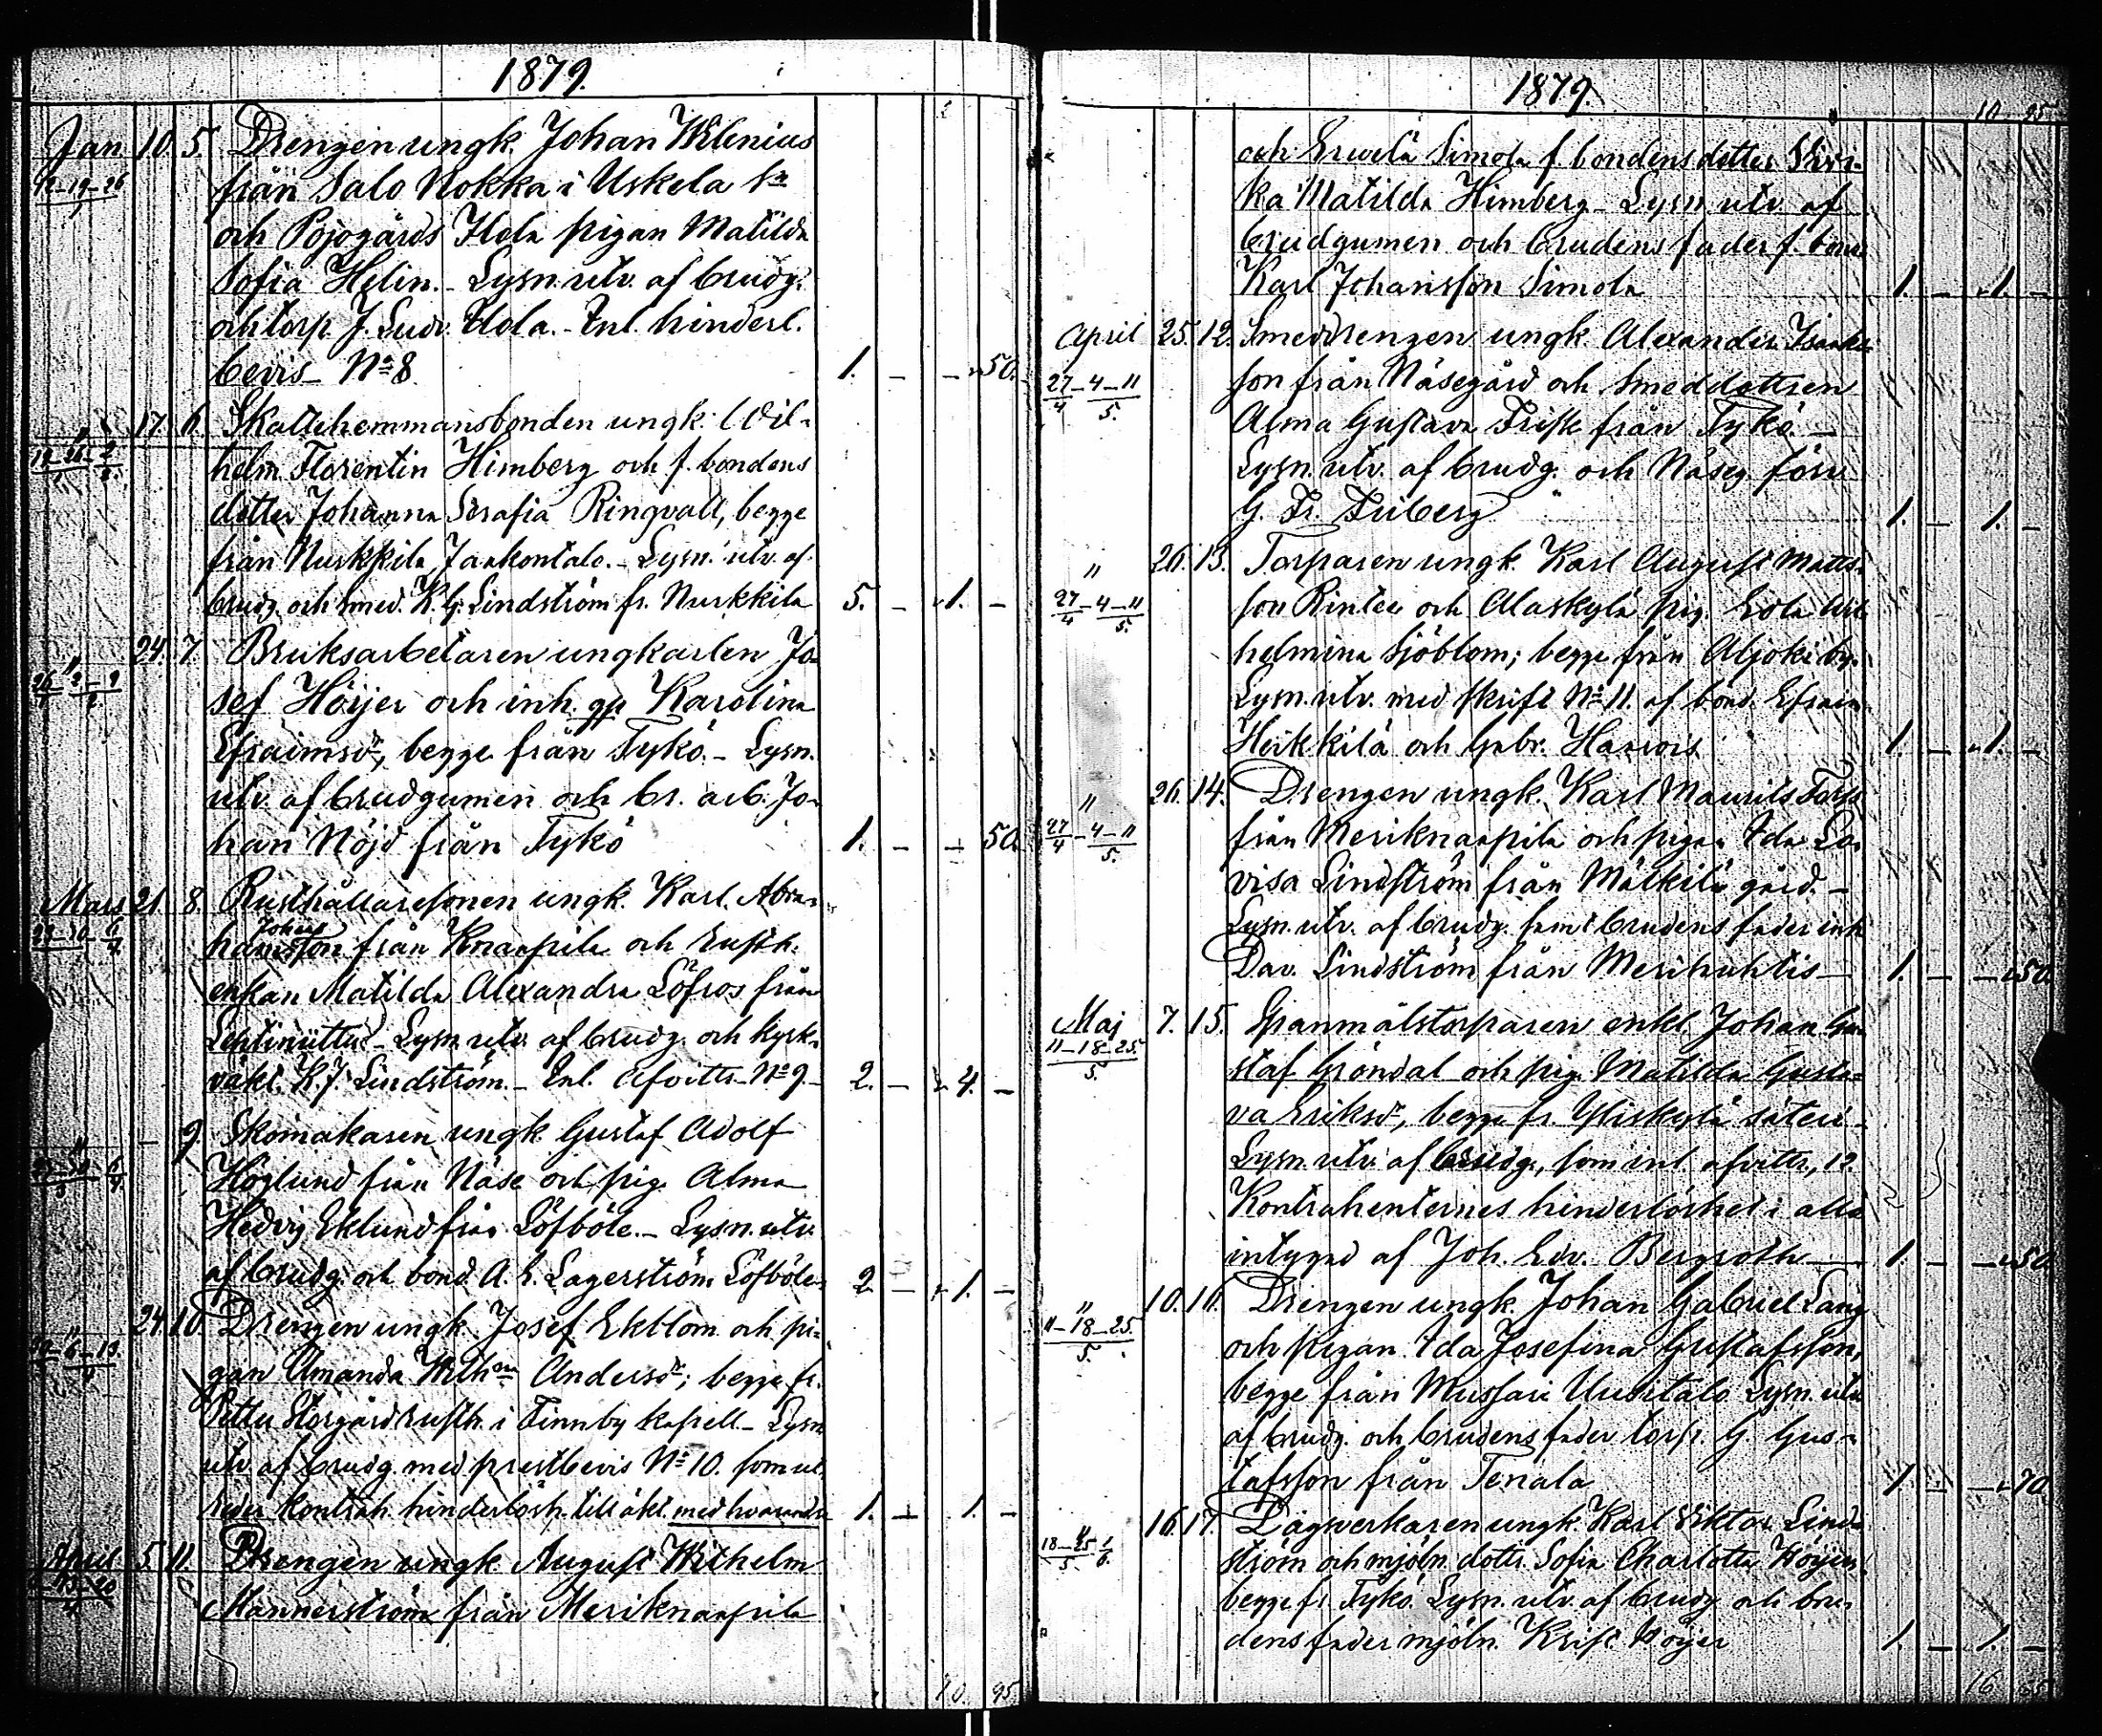 1879.
Jan. 10. 5. Drengen ungk. Johan Wilenius
12-19-26/1 från Salo Nokka i Uskela Sn
och Pojogårds Isola pigan Matilda
Sofia Helin. - Lysn. utv. af brudg.
och torp. J. Ludv. Isola. - Inl. hinderl.
bevis - No 8. 1. - - 50.
" 17. 6. Skattehemmansbonden ungk. Wil-
19-26/1-2/2. helm Florentin Himberg och f. bondens
dotter Johanna Serafia Ringvall, begge
från Nurkkila, Jaakontalo. - Lysn. utv. af
brudg. och smed. K. G. Lindström fr. Nurkkila 5. - 1. -
" 24. 7. Bruksarbetaren ungkarlen Jo-
26/1-2-9/2 sef Höijer och inh. Karolina
Efraimsdr, begge från Tykö. - Lysn.
utv. af brudgumen och br. arb. Jo-
han Nöjd från Tykö 1. - - 50.
Mars 21. 8. Rusthållaresonen ungk. Karl Abra-
23-30/3-6/4 Johans
hamsson från Knaapila och Rusth.
enkan Matilda Alexandra Löfros från
Lehtiniittu - Lysn. utv. af brudg. och kyrk-
väkt. K. J. Lindström. - Inl. Afvittr. No 9. - 2. - 4. -
" - 9. Skomakaren ungk. Gustaf Adolf
23-30/3-6/4 Höglund från Näse och pig. Alma
Hedvig Eklund från Löfböle. - Lysn. utv.
af brudg. och bond. A. E. Lagerström Löfböle. 2. - 1. -
" 24. 10. Drengen ungk. Josef Ekblom och pi-
30/3-6-13/4 gan Amanda Wilhna Andersdr; begge fr.
Pettu Storgård rusth. i Finnby kapell. - Lysn.
utv. af brudg. med prestbevis No 10. som ut-
reder kontrah. hinderlösh. till äkt. med hvarandra 1. - 1. -
April 5. 11. Drengen ungk. August Wilhelm
6-13-20/4 Mannerström från Meriknaapila
10. 95
1879.
10 95
och Ervelä Simola f. bondens dotter Ulri-
ka Matilda Himberg - Lysn. utv. af
brudgumen och brudens fader f. bond.
Karl Johansson Simola 1. - 1. -
April 25. 12. Smeddrengen ungk. Alexander Isaaks-
27/4-4-11/5. son från Näsegård och Smeddottren
Alma Gustava Frisk från Tykö. -
Lysn. utv. af brudg. och Näseg. förv.
G. Fr. Friberg 1. - 1. -
" 26. 13. Torparen ungk. Karl August Matts-
27/4-4-11/5. son Rintee och Alaskylä pig. Eva Wil-
helmina Sjöblom; begge från Aljoki by.
Lysn. utv. med skrift No 11. af bond. Efraim
Heikkilä och Gabr. Haarois 1. - 1. -
" 26. 14. Drengen ungk. Karl Maurits Fors
27/4-4-11/5. från Meriknaapila och pigan Ida Lo-
visa Lindström från Mälkilä gård. -
Lysn. utv. af brudg. samt brudens fader inh.
Dav. Lindström från Merihuhtis - 1. - - 50.
Maj 7. 15. Spanmålstorparen enkl. Johan Gu-
11-18-25./5. staf Gröndal och pig. Matilda Gusta-
va Eriksdr, begge fr. Yliskylä säteri.
Lysn. utv. af brudg., som inl. afvittr., 12.
Kontrahenternes hinderlöshet i allo
intygad af Joh. Edv. Bergroth - 1. - - 50.
" 10. 16. Drengen ungk. Johan Gabriel Lang
11-18-25./5. och pigan Ida Josefina Gustafsson,
begge från Mussari Uusitalo. Lysn. utv.
af brudg. och brudens fader torp. G. Gus-
tafsson från Tenala 1. - - 70.
" 16. 17. Dagsverkaren ungk. Karl Viktor Lind-
18-25/5 1/6. ström och mjöln. dottr. Sofia Charlotta Höijer,
begge fr. Tykö. Lysn. utv. af brudg. och bru-
dens fader mjöln. Krist. Höijer 1. - 1. -
16 65